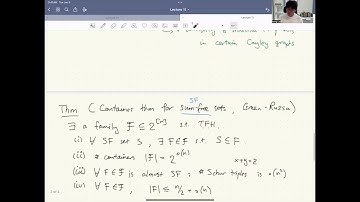 Lecture 11
in certain Cayley graphs
SF
Thm (Container thm for sum-free sets, Green-Ruzsa)
∃ a family F ⊆ 2^[n] s.t. TFH.
(i) ∀ SF set S, ∃ F∈F s.t. S ⊆ F
(ii) # containers |F| = 2^o(n)
x+y=z
(iii) ∀ F∈F is almost SF: # Schur triples is o(n²)
(iv) ∀ F∈F, |F| ≤ n/2 + o(n)